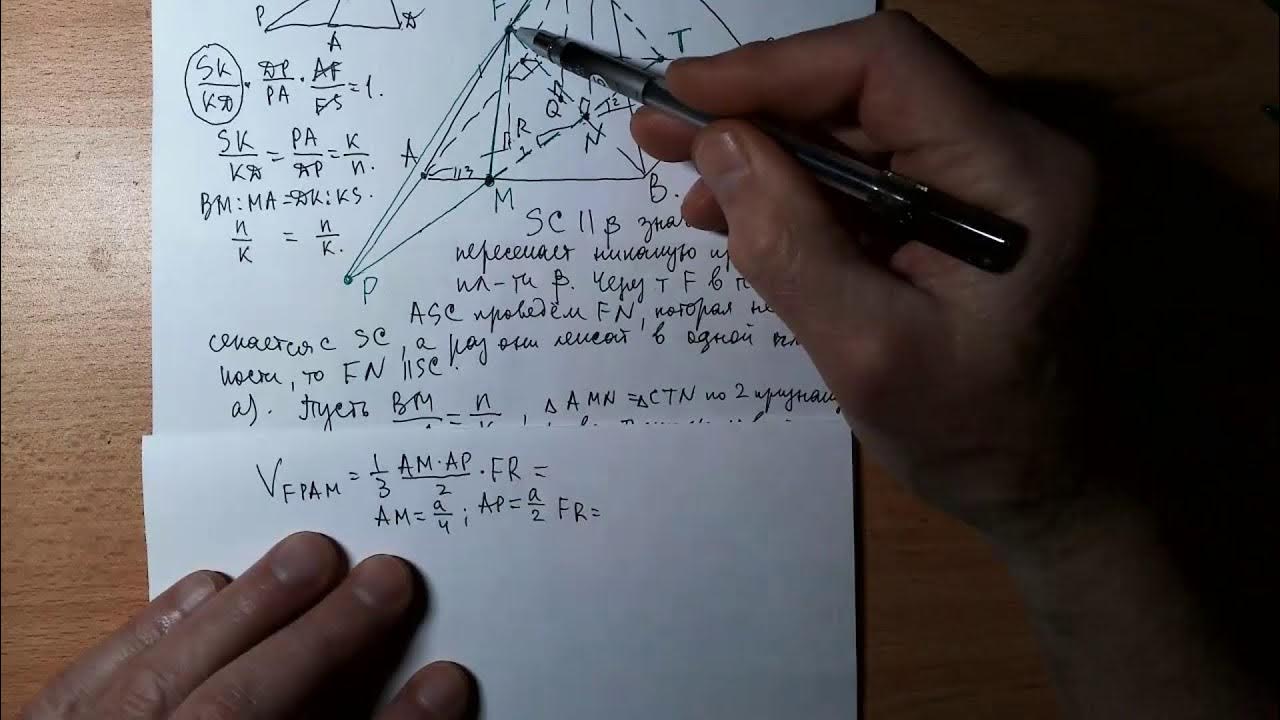 F
T
P A
SK/KD · DP/PA · AF/FS = 1.
SK/KD = PA/DP = k/n.
BM:MA=DK:KS.
n/k = n/k.
A
Q
R
N
M
B.
P
SC || β
пересекает никакую
пл-ти β. Через т F в
ASC проведём FN, которая не
секается с SC, а раз они лежат в одной
ности, то FN || SC.
а). Пусть BM = n, Δ AMN = Δ CTN по 2 признаку
V FPAM = 1/3 AM·AP/2 · FR =
AM = a/4; AP = a/2 FR =